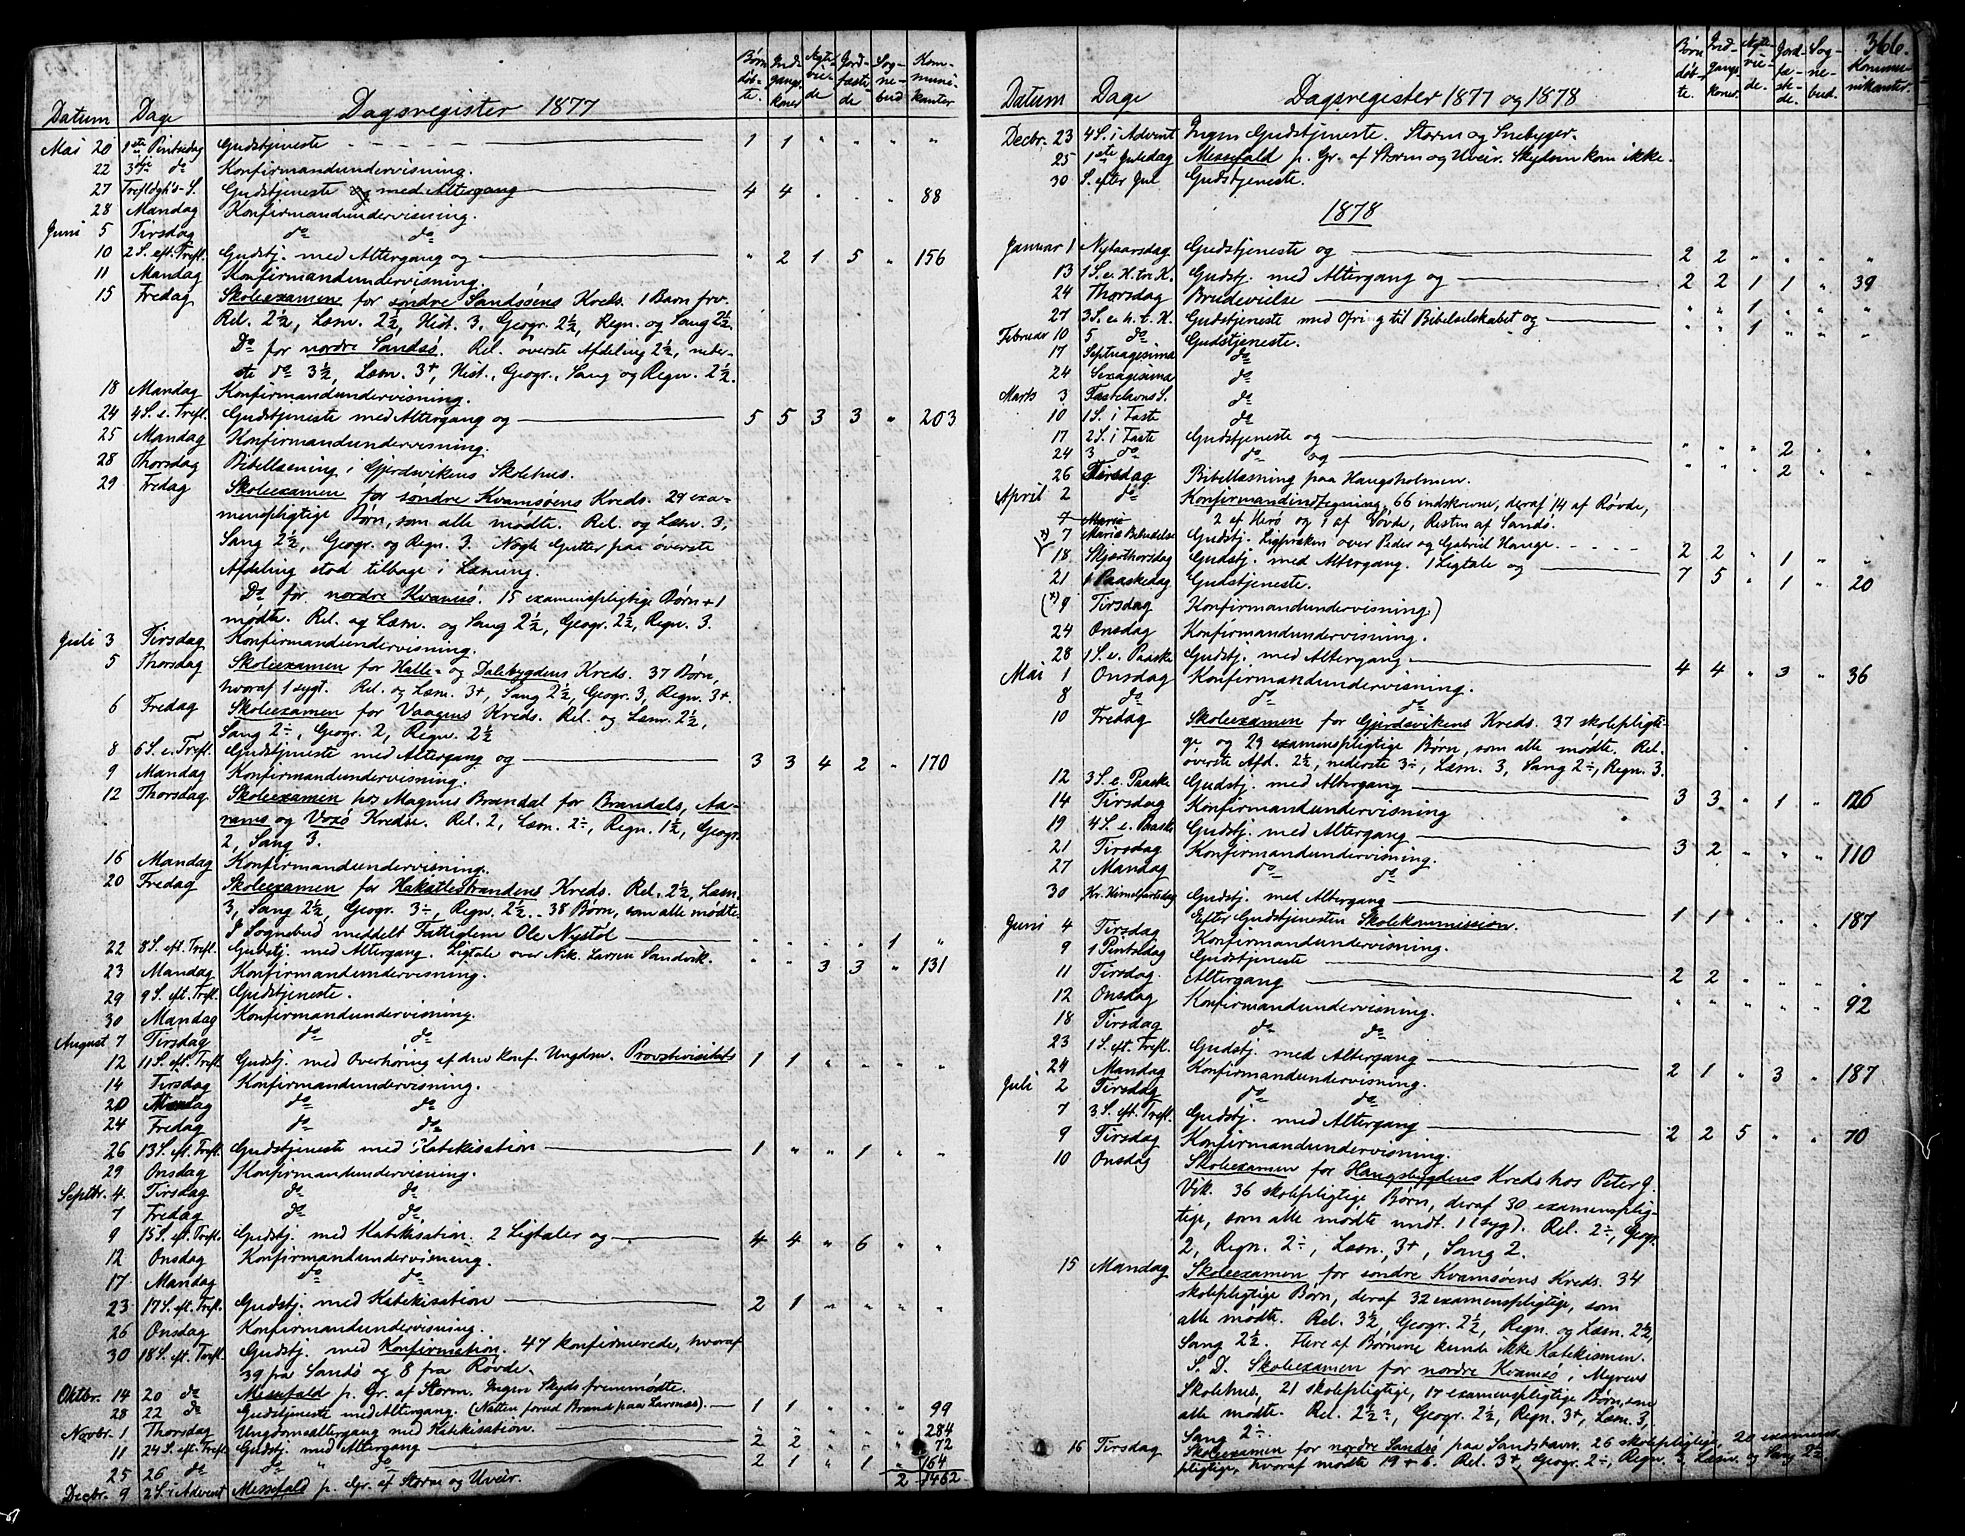 Datum Dage Dagsregister 1877 Børn døbte. Indgangskoner Nyteviede Jordfæstede Sognebud Kommunikanter
Mai 20 1ste Pintsedag Gudstjeneste 1 1 " " " "
22 3die do Konfirmandundervisning.
27 Trefoldgh's S. Gudstjeneste med Altergang 4 4 " " " 88
28 Mandag Konfirmandundervisning.
Juni 5 Tirsdag do do
10 2 S. eft. Trefl. Gudstj. med Altergang og " 2 1 5 " 156
11 Mandag Konfirmandundervisning.
15 Fredag Skoleexamen for søndre Sandsøens Kreds. 1 Barn frv.
Rel. 2½, Læsn. 2½, Hist. 3, Geogr. 2½, Regn. og Sang 2½.
Do for nordre Sandsø. Rel. øverste Afdeling 2½, neder-
ste do 3½, Læsn. 3+, Hist., Geogr., Sang og Regn. 2½.
18 Mandag Konfirmandundervisning.
24 4 S. e. Trefl. Gudstjeneste med Altergang og 5 5 3 3 " 203
25 Mandag Konfirmandundervisning.
28 Thorsdag Bibellæsning i Gjerdsvikens Skolehus.
29 Fredag Skoleexamen for søndre Kvamsøens Kreds. 29 exa-
menspligtige Børn, som alle mødte. Rel. og Læsn. 3,
Sang 2½, Geogr. og Regn. 3. Nogle Gutter paa øverste
Afdeling stod tilbage i Læsning.
Do for nordre Kvamsø. 15 examenspligtige Børn + 1
mødte. Rel. og Læsn. og Sang 2½, Geogr. 2½, Regn. 3.
Juli 3 Tirsdag Konfirmandundervisning.
5 Thorsdag Skoleexamen for Halle- og Dalebygdens Kreds. 37 Børn,
hvoraf 1 sygt. Rel. og Læsn. 3+, Sang 2½, Geogr. 3, Regn. 3+.
6 Fredag Skoleexamen for Vaagens Kreds. Rel. og Læsn. 2½,
Sang 2÷, Geogr. 2, Regn. 2½
8 6 S. e. Trefl. Gudstjeneste med Altergang og 3 3 4 2 " 170
9 Mandag Konfirmandundervisning.
12 Thorsdag Skoleexamen hos Magnus Brandal for Brandals, Aa-
rams og Voxø Kredse. Rel. 2, Læsn. 2÷, Regn. 1½, Geogr.
2, Sang 3.
16 Mandag Konfirmandundervisning.
20 Fredag Skoleexamen for Hakallestrandens Kreds. Rel. 2½, Læsn.
3, Sang 2½, Geogr. 3÷, Regn. 2½. 38 Børn, som alle mødte.
I Sognebud meddelt Fattiglem Ole Nystøl " " " " 1 "
22 8 S. eft. Trefl. Gudstj. med Altergang. Ligtale over Nik. Larsen Sandvik. " " 3 3 " 131
23 Mandag Konfirmandundervisning.
29 9 S. eft. Trefl. Gudstjeneste.
30 Mandag Konfirmandundervisning.
August 7 Tirsdag do do
12 11 S. eft. Trefl. Gudstj. med Overhøring af den konf. Ungdom. Provstevisitats 1 1 " " " "
14 Tirsdag Konfirmandundervisning.
20 Mandag do do
24 Fredag do do
26 13 S. eft. Trefl. Gudstjeneste med Katekisation 1 " " 1 " "
29 Onsdag Konfirmandundervisning.
Septbr. 4 Tirsdag do do
7 Fredag do do
9 15 S. eft. Trefl. Gudstj. med Katekisation. 2 Ligtaler og 4 4 " 6 " "
12 Onsdag Konfirmandundervisning.
17 Mandag do do
23 17 S. eft. Trefl. Gudstj. med Katekisation 2 1 " " " "
26 Onsdag Konfirmandundervisning.
30 18 S. eft. Trefl. Gudstj. med Konfirmation. 47 konfirmerede, hvoraf
39 fra Sandø og 8 fra Røvde.
Oktbr. 14 20 do Messefald p. Gr. af Storm. Ingen Skyds fremmødte.
28 22 do Gudstjeneste med Altergang. (Natten forud Brand paa Larsnes). 1 1 " " " 99
Novbr. 1 Thorsdag Ungdomsaltergang med Katekisation. " " " " 284
11 24 S. eft. Trefl. Gudstj. med Altergang 2 2 72
25 26 do do " do 2 1 " 1 " 164
Decbr. 9 2 S. i Advent Messefald p. Gr. af Storm og Uveir. 2 1462
366.
Datum Dage Dagsregister 1877 og 1878 Børn døbte. Indgangskoner. Nyteviede. Jordfæstede. Sognebud. Kommunikanter.
Decbr. 23 4 S. i Advent Ingen Gudstjeneste. Storm og Snebyger.
25 1ste Juledag Messefald p. Gr. af Storm og Uveir. Skydsen kom ikke.
30 S. efter Jul Gudstjeneste.
1878
Januar 1 Nytaarsdag Gudstjeneste og 2 2 " " " "
13 1 S. e. H. tre K. Gudstj. med Altergang og 2 2 1 1 " 39
24 Thorsdag Brudevielse " " 1 " " "
27 3 S. e. h. t. K. Gudstjeneste med Ofring til Bibelselskabet og " " 1 " " "
Februar 10 5 do Gudstjeneste.
17 Septuagesima do
24 Sexagesima do
Marts 3 Fastelavns S. do
10 1 S. i Faste do
17 2 S. i Faste Gudstjeneste og " " " 2 " "
24 3 do do og " " " 2 " "
26 Tirsdag Bibellæsning paa Haugsholmen.
April 2 do Konfirmandindtegning, 66 indskrevne, deraf 14 af Røvde,
7 Mariæ 2 af Herø og 1 af Vovde, Resten af Sandø.
x) 7 Mariæ Bebudelse Gudstj. Ligpræken over Peder og Gabriel Hauge. 2 2 " 1 " "
18 Skjærthorsdag Gudstj. med Altergang. 1 Ligtale og 7 5 " 1 " 20
21 1 Paaskedag Gudstjeneste.
(x) 9 Tirsdag Konfirmandundervisning)
24 Onsdag Konfirmandundervisning.
28 1 S. e. Paaske Gudstj. med Altergang 4 4 " 3 " 36
Mai 1 Onsdag Konfirmandundervisning.
8 do do do
10 Fredag Skoleexamen for Gjerdsvikens Kreds. 37 skolepligti-
ge og 29 examenspligtige Børn, som alle mødte. Rel.
øverste Afd. 2½, nederste 3÷, Læsn. 3, Sang 2÷, Regn. 3.
12 3 S. e. Paaske Gudstj. med Altergang 3 3 " 1 " 126
14 Tirsdag Konfirmandundervisning
19 4 S. e. Paaske Gudstj. med Altergang 3 2 " " " 110
21 Tirsdag Konfirmandundervisning.
27 Mandag do do
30 Kr. Himmelfartsdag Gudstj. med Altergang 1 1 " " 187
Efter Gudstjenesten Skolekommission.
Juni 4 Tirsdag Konfirmandundervisning.
9 1 Pintsedag Gudstjeneste 2 2 " " " "
11 Tirsdag Altergang " " " " " 92
12 Onsdag Konfirmandundervisning.
18 Tirsdag do do
23 1 S. eft. Trefl. Gudstj. med Altergang 2 1 " 3 " 187
24 Mandag Konfirmandundervisning.
Juli 2 Tirsdag do do
7 3 S. eft. Trefl. Gudstj. med Altergang 2 2 5 " " 70
9 Tirsdag Konfirmandundervisning.
10 Onsdag Skoleexamen for Haugsbygdens Kreds hos Peter J.
Vik. 36 skolepligtige Børn, deraf 30 examensplig-
tige, som alle mødte undt. 1 (syg). Rel. 2÷, Geogr.
2, Regn. 2÷, Læsn. 3+, Sang 2.
15 Mandag Skoleexamen for søndre Kvamsøens Kreds. 34
skolepligtige Børn, deraf 32 examenspligtige, som
alle mødte. Rel. 3½, Geogr. 2½, Regn. og Læsn. 2½,
Sang 2½. Flere af Børnene kunde ikke Katekismen.
S. D. Skoleexamen for nordre Kvamsø, Myrens
Skolehus, 21 skolepligtige, 17 examenspligtige Børn, som
alle mødte. Rel. 2½, Geogr. 2½, Regn. 3+, Læsn. 3,
Sang 2÷.
16 Tirsdag Skoleexamen for nordre Sandsø paa Sandshavn. 26 skolepligtige, 20 examens-
pligtige, hvoraf mødte 19 + 6. Rel. 3+, Geogr. 2÷, Regn. 3, Læsn. og Sang 2½.